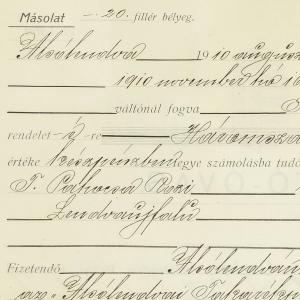 Másolat — 20. fillér bélyeg.
Alsólendva 1910 augusz
1910 november hó 1
váltónál fogva
rendelet-é-re Háromszá
értéke készpénzben egye számolásba tudo
T. Rozi
Lendvaujfalu
Fizetendő Alsólendván
az "Alsólendvai Takarék